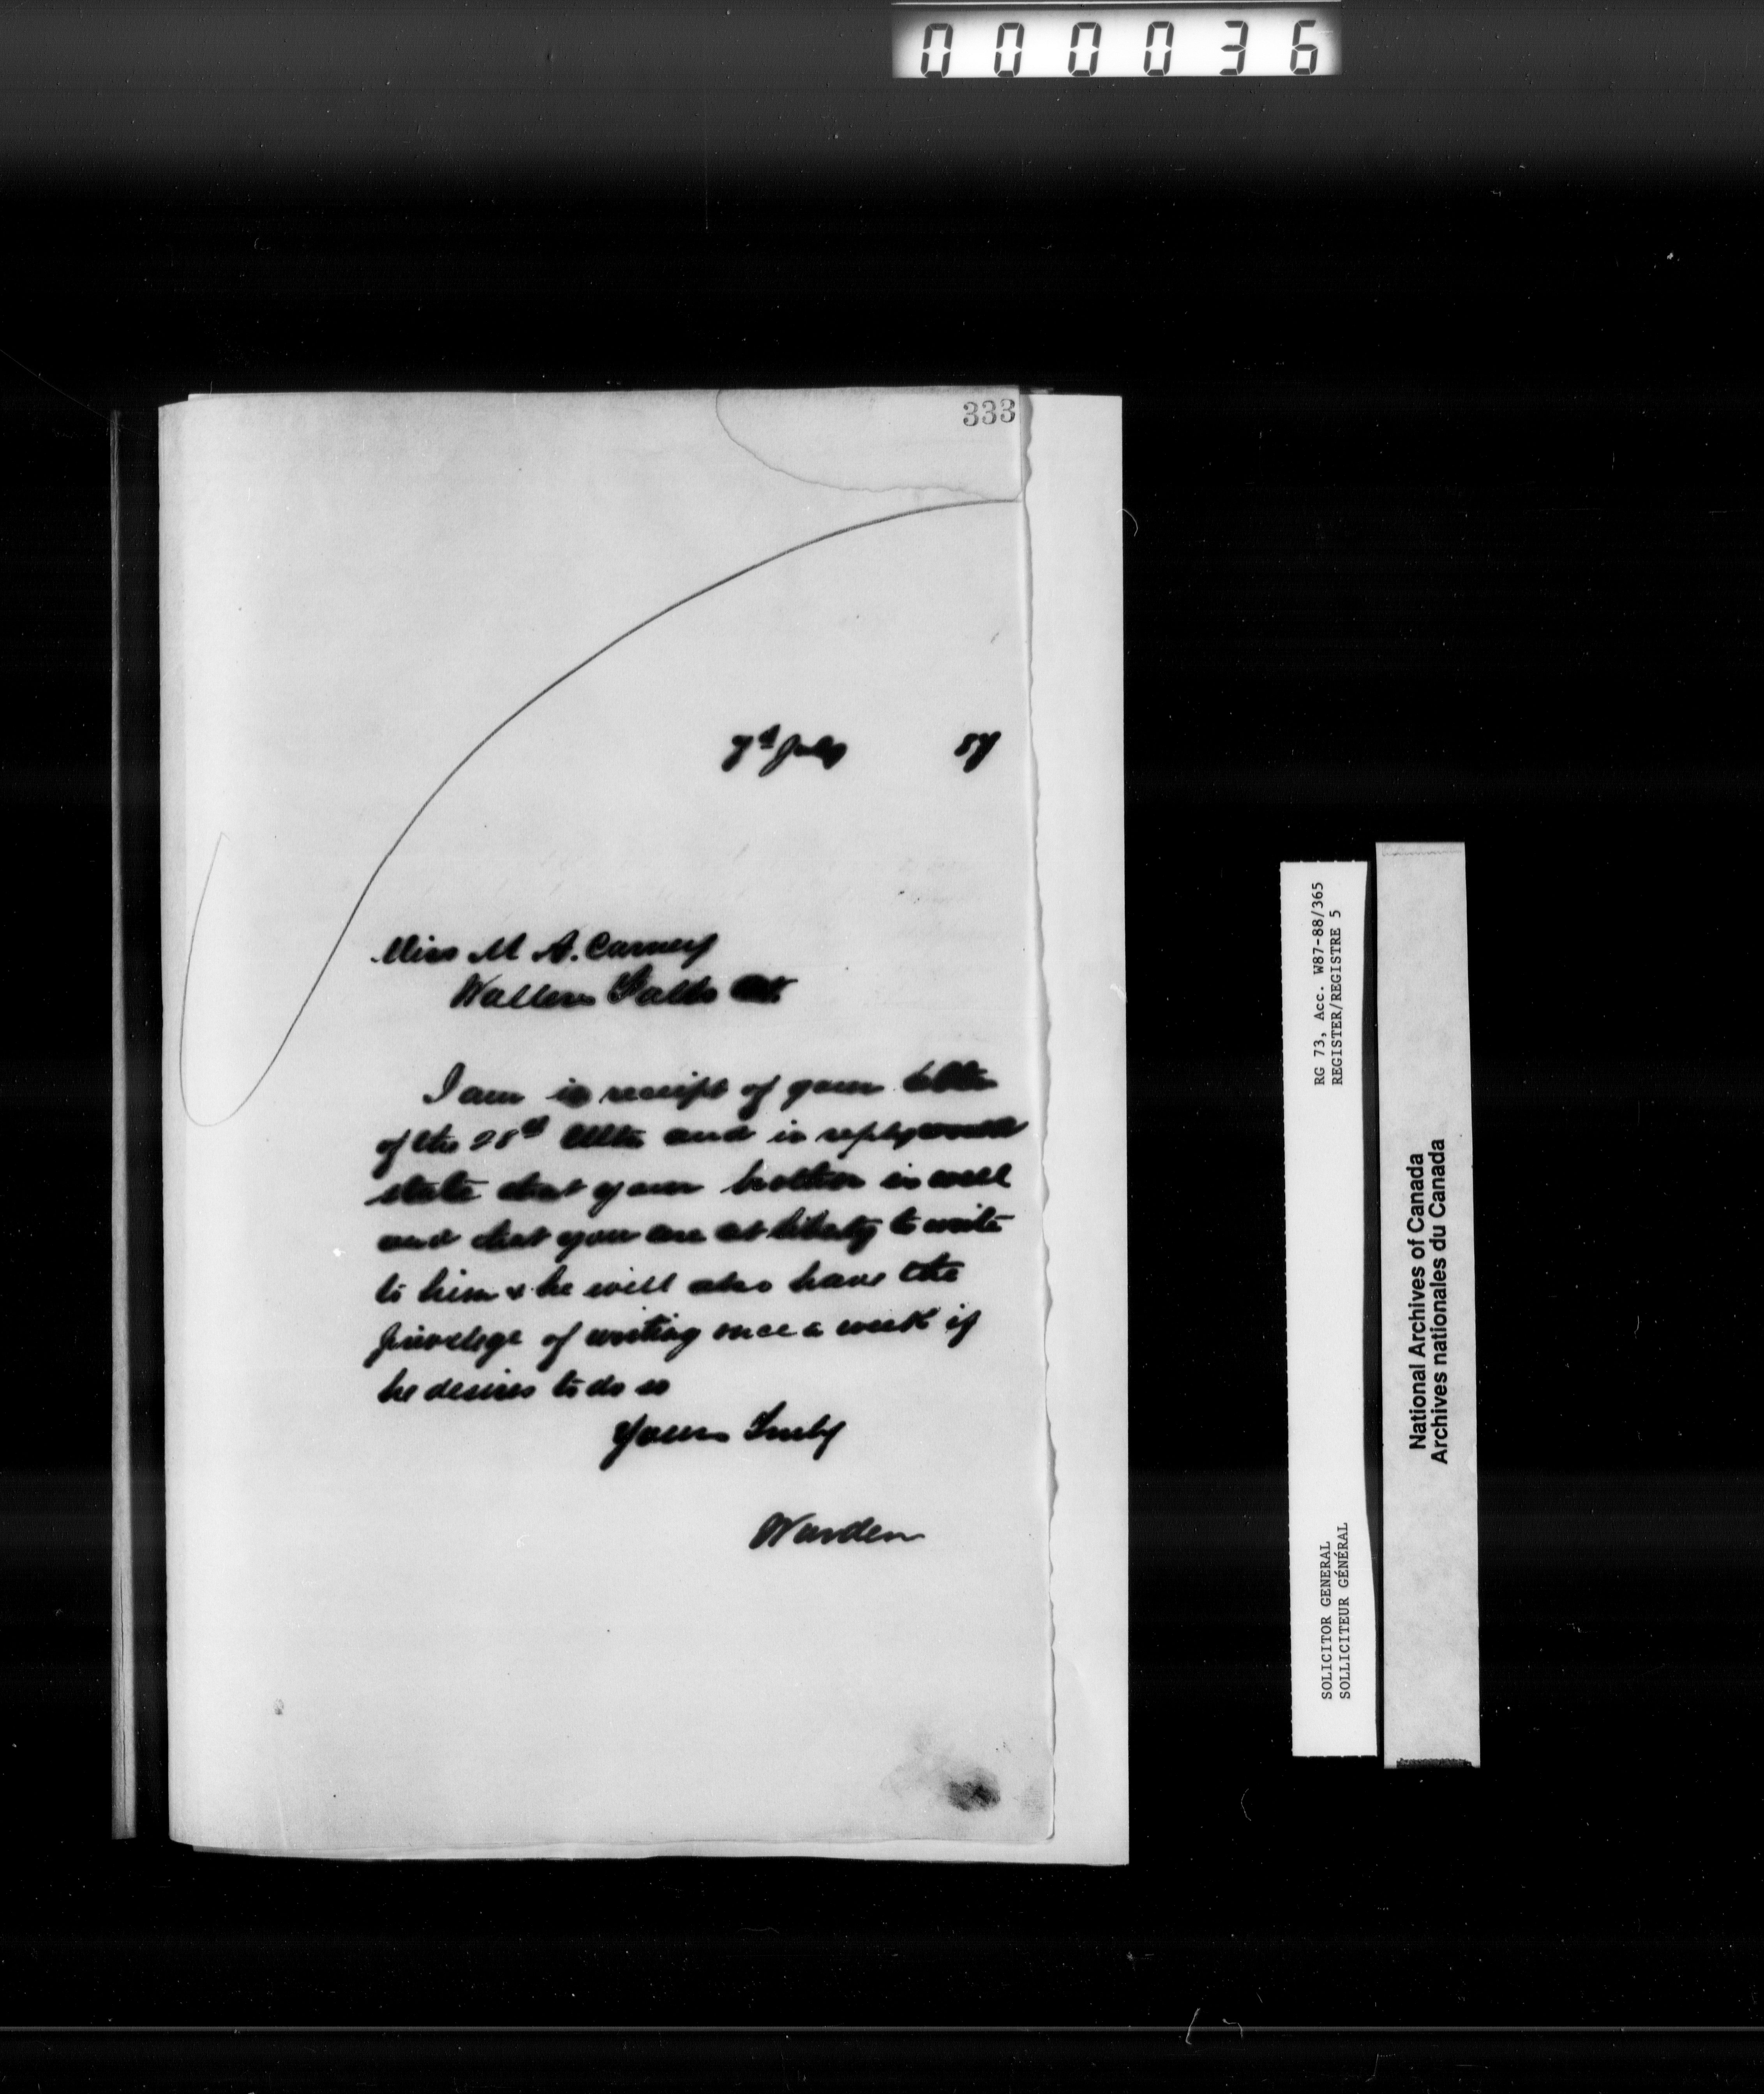 000036
333
7th July 87
Miss M A. Carney
Walters Falls Ont
I am in receipt of your letter
of the 28th Ulto and in reply would
state that your brother is well
and that you are at liberty to write
to him & he will also have the
privelege of writing once a week if
he desires to do so
Yours Truly
Warden
RG 73, Acc. W87-88/365
REGISTER/REGISTRE 5
SOLICITOR GENERAL
SOLLICITEUR GÉNÉRAL
National Archives of Canada
Archives nationales du Canada